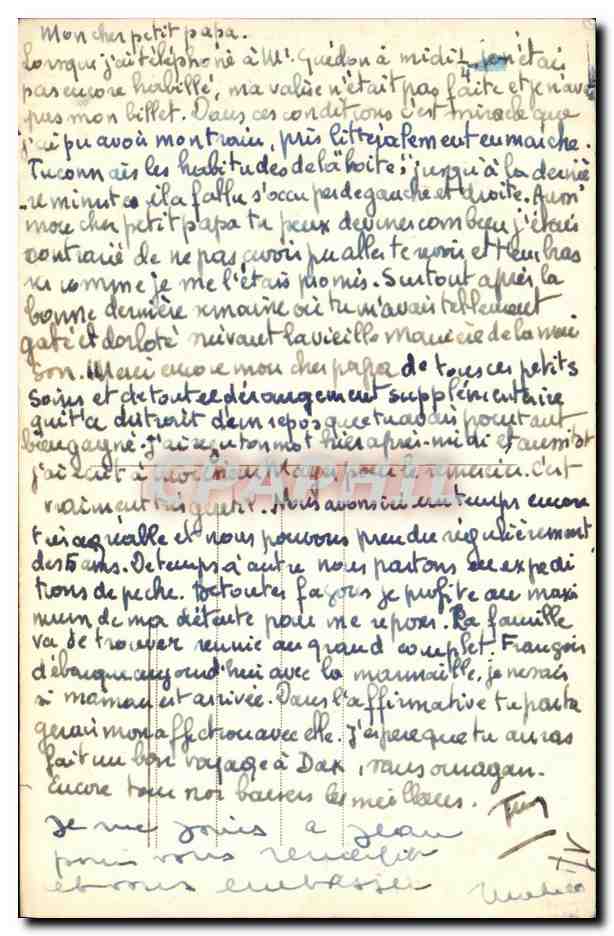 Mon cher petit papa.
Lorsque j'ai téléphoné à Mr Guédon à midi 1/4 je n'étais
pas encore habillé, ma valise n'était pas faite et je n'avais
pas mon billet. Dans ces conditions c'est miracle que
j'ai pu avoir mon train, pris littéralement en marche.
Tu connais les habitudes de la "boite", jusqu'à la derniè
re minute il a fallu s'occuper de gauche et droite. Aussi
mon cher petit papa tu peux deviner combien j'étais
contrarié de ne pas avoir pu aller te revoir et t'embras
ser comme je me l'étais promis. Surtout après la
bonne dernière semaine où tu m'avais tellement
gaté et dorloté suivant la vieille manière de la mai
son. Merci encore mon cher papa de tous ces petits
soins et de tout ce dérangement supplémentaire
qui t'a distrait de un repos que tu avais pourtant
bien gagné. J'ai reçu ton mot hier après-midi et aussitôt
j'ai écrit à pour le remercier. C'est
vraiment très gentil. Nous avons ici un temps encore
très agréable et nous pouvons prendre régulièrement
des bains. De temps à autre nous partons en expédi
tions de pêche. De toutes façons je profite au maxi
mum de ma détente pour me reposer. La famille
va se trouver reunie au grand complet. François
débarque aujourd'hui avec la marmaille, je ne sais
si maman est arrivée. Dans l'affirmative tu parta
geras mon affection avec elle. J'espere que tu auras
fait un bon voyage à Dax, sans ouragan.
Encore tous nos baisers les meilleurs.
Je me joins à Jean
pour vous remercier
et vous embrasser